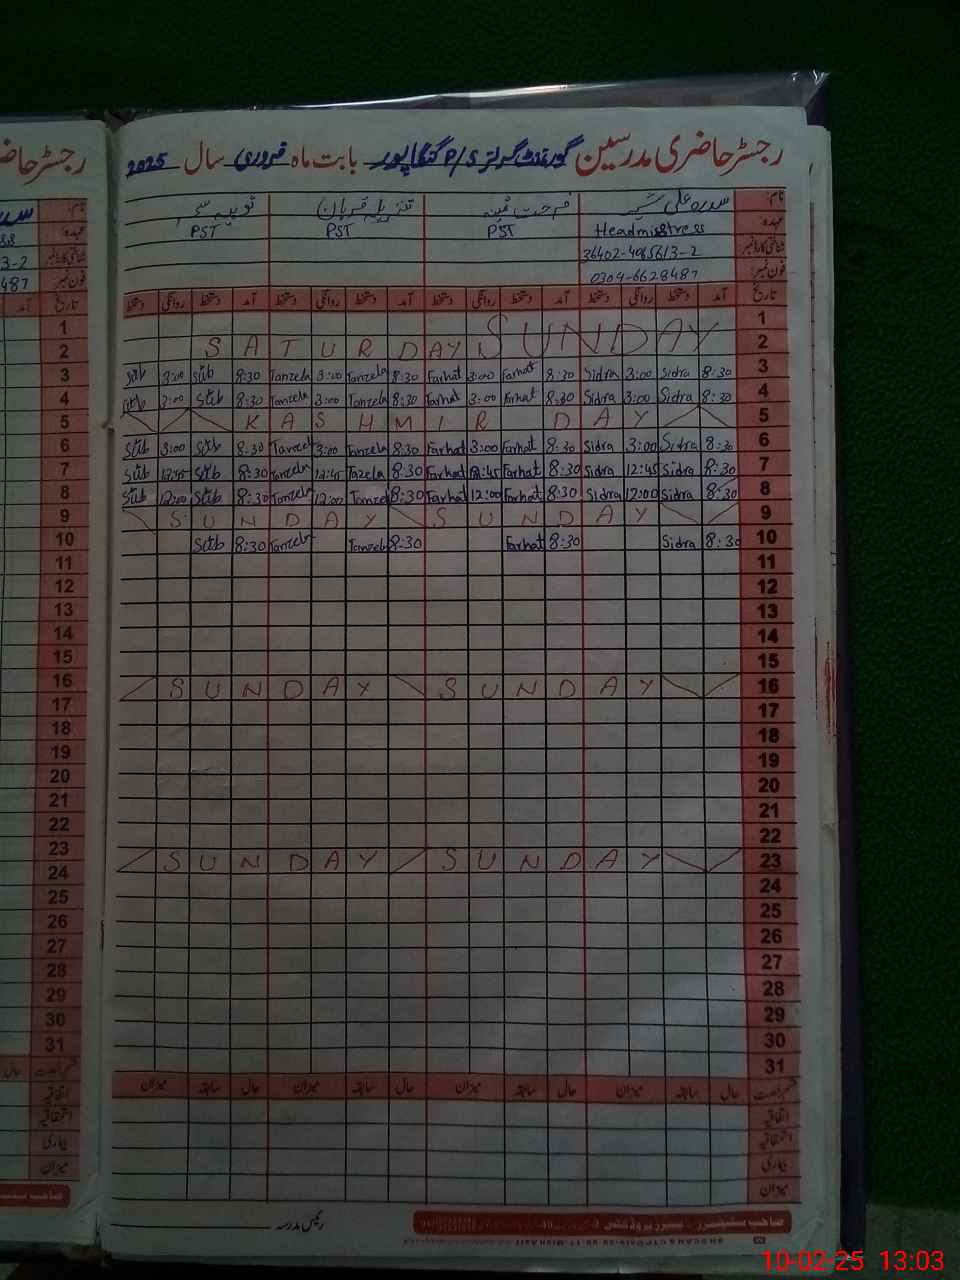 رجسٹر حاضری مدرسین گورنمنٹ گرلز P/S گنگاپور بابت ماہ فروری سال 2025
نام: سدرہ علی فرحت ثمینہ تنزیلہ قربان ثوبیہ سحر
عہدہ: Headmisstress PST PST PST
شناختی کارڈ نمبر 36402-4985613-2
فون نمبر: 0304-6628487
تاریخ آمد دستخط روانگی دستخط آمد دستخط روانگی دستخط آمد دستخط روانگی دستخط آمد دستخط روانگی دستخط
1
2 SATURDAY SUNDAY
3 8:30 Sidra 3:00 Sidra 8:30 Farhat 3:00 Farhat 8:30 Tanzela 3:00 Tanzela 8:30 3:00
4 8:30 Sidra 3:00 Sidra 8:30 Farhat 3:00 Farhat 8:30 Tanzela 3:00 Tanzela 8:30 3:00
5 KASHMIR DAY
6 8:30 Sidra 3:00 Sidra 8:30 Farhat 3:00 Farhat 8:30 Tanzela 3:00 Tanzela 8:30 3:00
7 8:30 Sidra 12:45 Sidra 8:30 Farhat 12:45 Farhat 8:30 Tazela 12:45 Tanzela 8:30 12:45
8 8:30 Sidra 12:00 Sidra 8:30 Farhat 12:00 Farhat 8:30 Tanzela 12:00 Tanzela 8:30 12:00
9 SUNDAY SUNDAY
10 8:30 Sidra 8:30 Farhat 8:30 Tanzela Tanzela 8:30
11
12
13
14
15
16 SUNDAY SUNDAY
17
18
19
20
21
22
23 SUNDAY SUNDAY
24
25
26
27
28
29
30
31
قسم رخصت حال سابقہ میزان حال سابقہ میزان حال سابقہ میزان حال سابقہ میزان
اتفاقیہ
استحقاقیہ
بیماری
میزان
رئیس مدرسہ
رجسٹر حاضر
نام:
عہدہ:
شناختی کارڈ نمبر 3-2
فون نمبر: 487
تاریخ آمد
1
2
3
4
5
6
7
8
9
10
11
12
13
14
15
16
17
18
19
20
21
22
23
24
25
26
27
28
29
30
31
قسم رخصت حال
اتفاقیہ
استحقاقیہ
بیماری
میزان
10-02-25 13:03